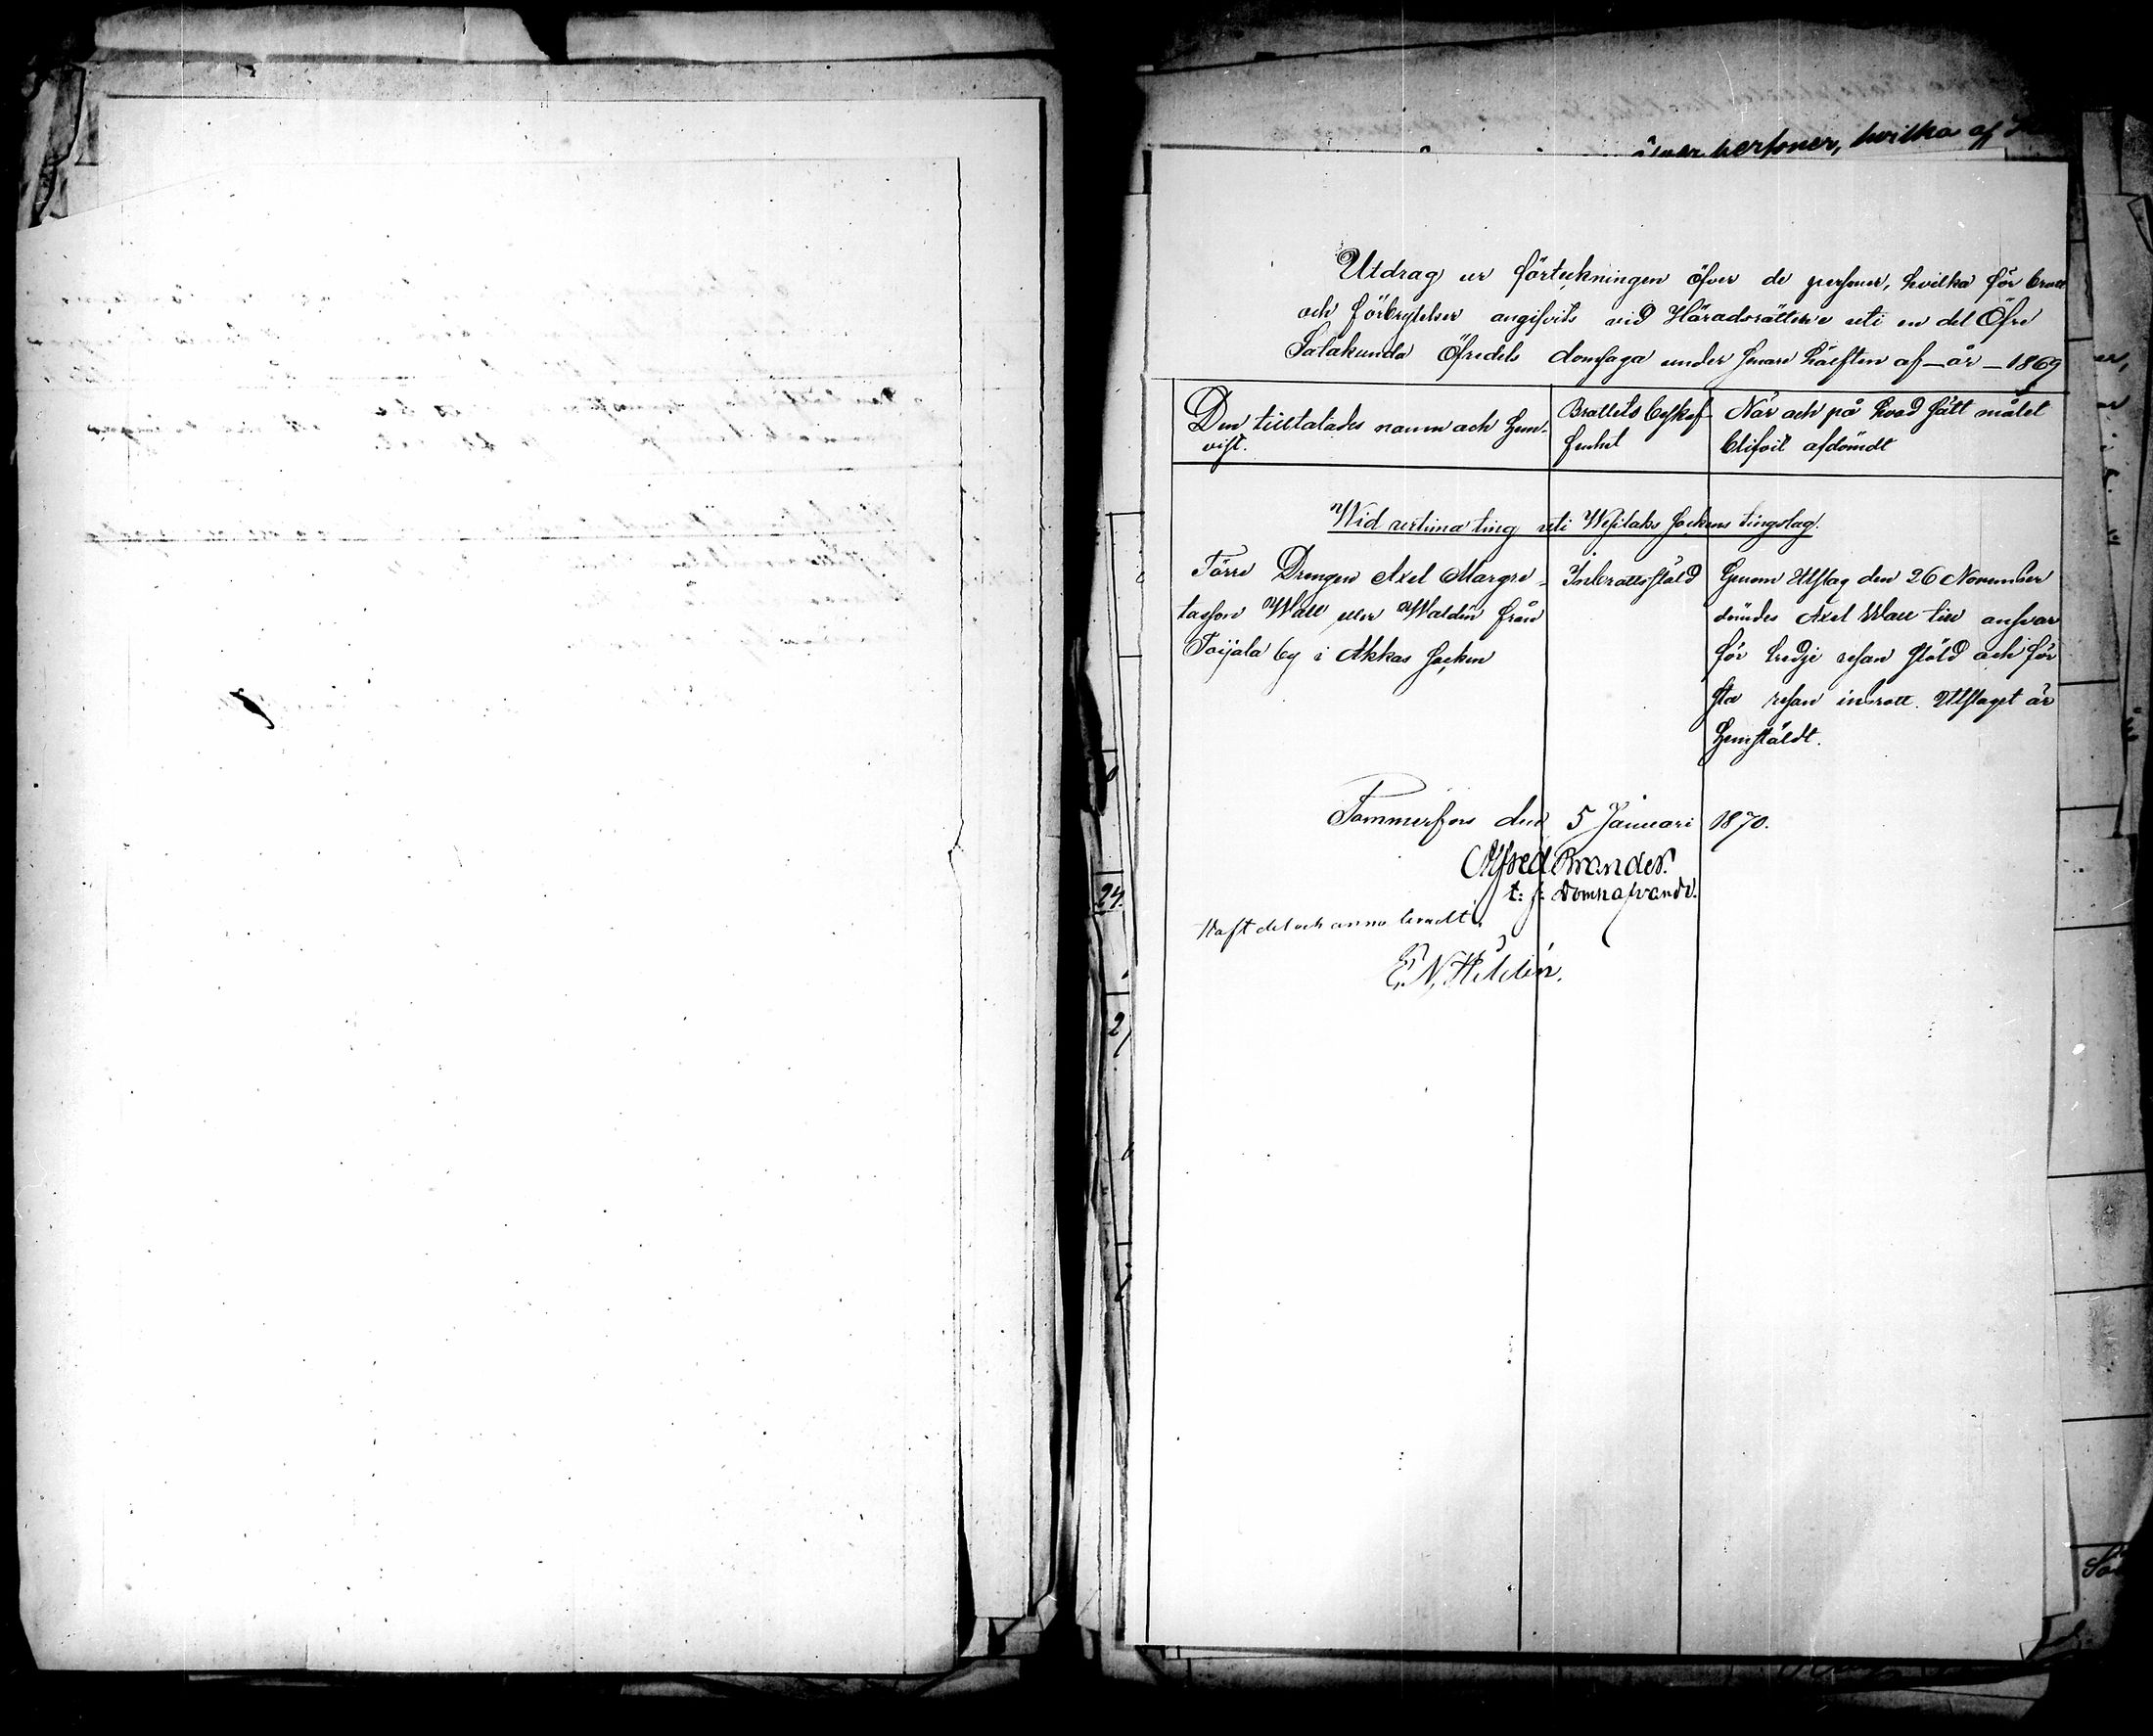 öfver personer, hvilka af
Utdrag ur förteckningen öfver de personer, hvilka för brott
och förbrytelser angifvits vid Häradsrätterne uti en del Öfre
Satakunda Öfredels domsaga under senare hälften af – år – 1869
Den tilltalades namn och hem-
vist.
Brottets beskaf-
fenhet
När och på hvad sätt målet
blifvit afdömdt
Wid urtima ting uti Wesilaks Sockens tingslag.
Förre Drengen Axel Margre-
tasson Wall eller Waldén från
Toijala by i Akkas Socken
Inbrottsstöld
Genom Utslag den 26 November
dömdes Axel Wall till ansvar
för tredje resan stöld och för
sta resan inbrott. Utslaget är
hemstäldt.
Tammerfors den 5 Januari 1870.
Alfred Brander.
t: f: Domhafvande.
E. N. Hildén.
24.
2